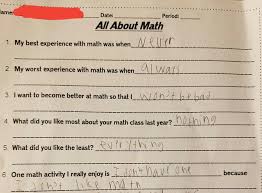 Name:
Date Period:
All About Math
1. My best experience with math was when Never
2. My worst experience with math was when always
3. I want to become better at math so that I won't be bad
4. What did you like most about your math class last year? nothing
5. What did you like the least? everything
6. One math activity I really enjoy is I dont have one because
I don't like math